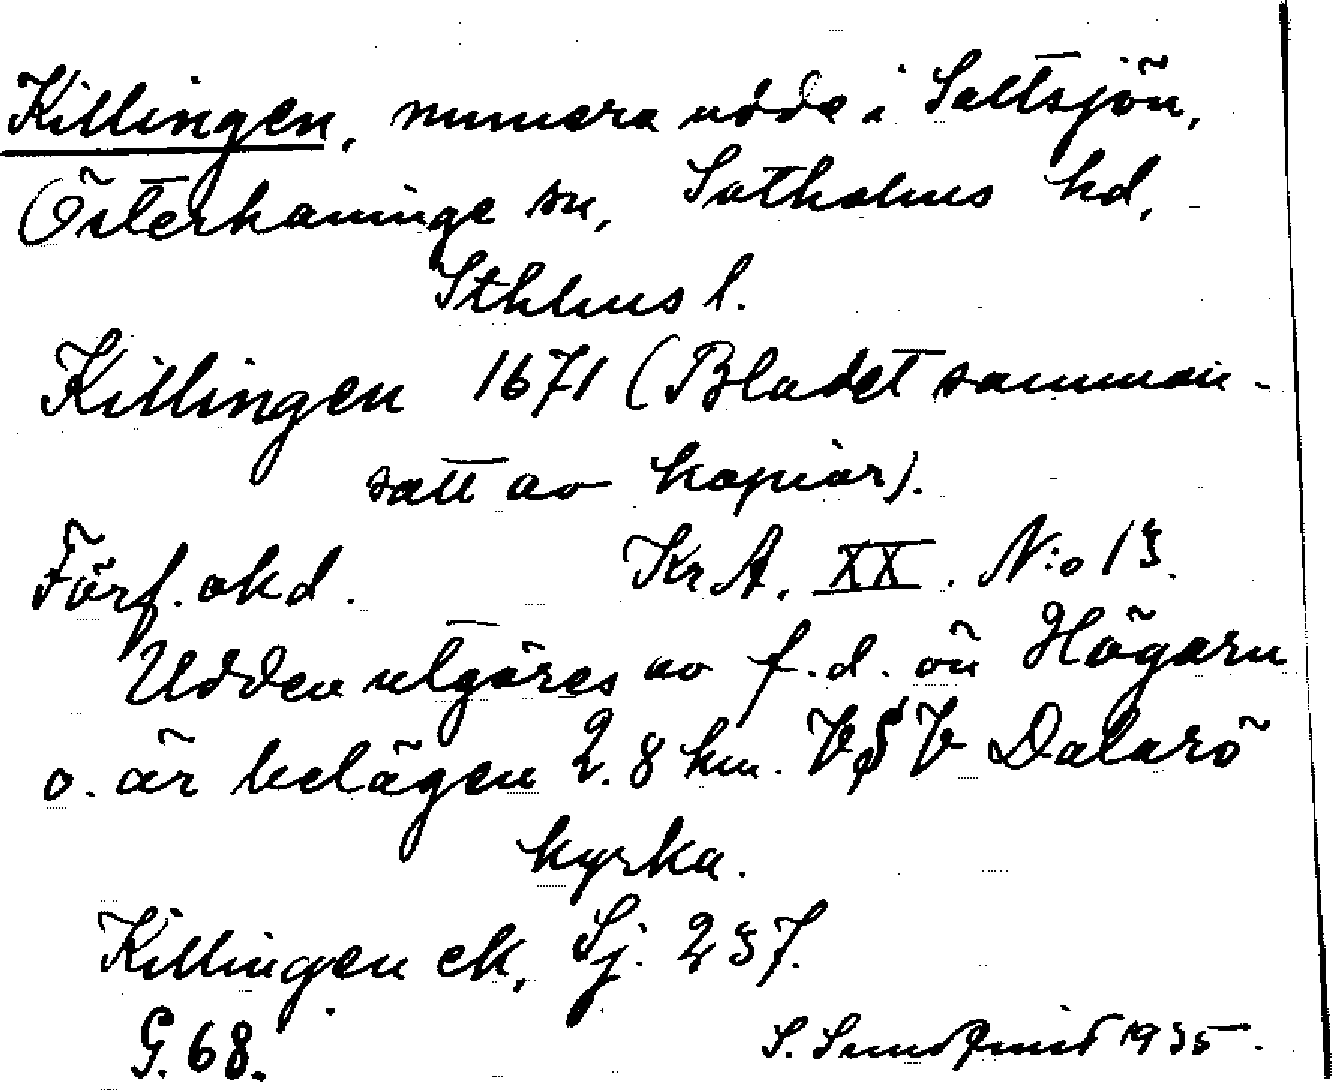 Killingen, numera udde i Saltsjön,
Österhaninge sn, Sotholms hd,
Sthlms l.
Killingen 1671 (Bladet samman-
satt av kopior).
Förf. okd. Kr A. XX. N:o 13.
Udden utgöres av f.d. ön Högarn
o. är belägen 2.8 km. VSV Dalarö
kyrka.
Killingen ek, Sj. 237.
G. 68. S. Sundqvist 1935.